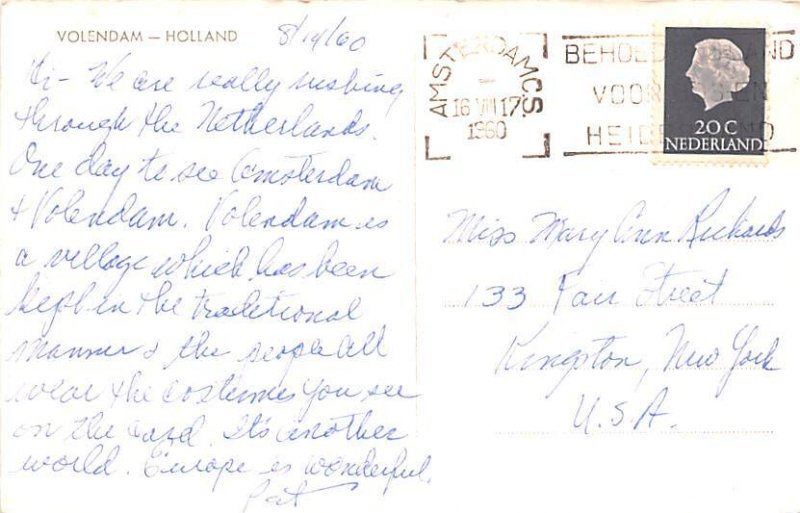 VOLENDAM — HOLLAND
8/14/60
Hi - We are really rushing
through the Netherlands.
One day to see Amsterdam
& Volendam. Volendam is
a village which has been
kept in the traditional
manner & the people all
wear the costumes you see
on the card. It's another
world. Europe is wonderful.
Pat
AMSTERDAM C.S
16 VIII 17
1960
BEHOED
VOOR
HEIDE
20 C
NEDERLAND
Miss Mary Ann Rickards
133 Fair Street
Kingston, New York
U.S.A.